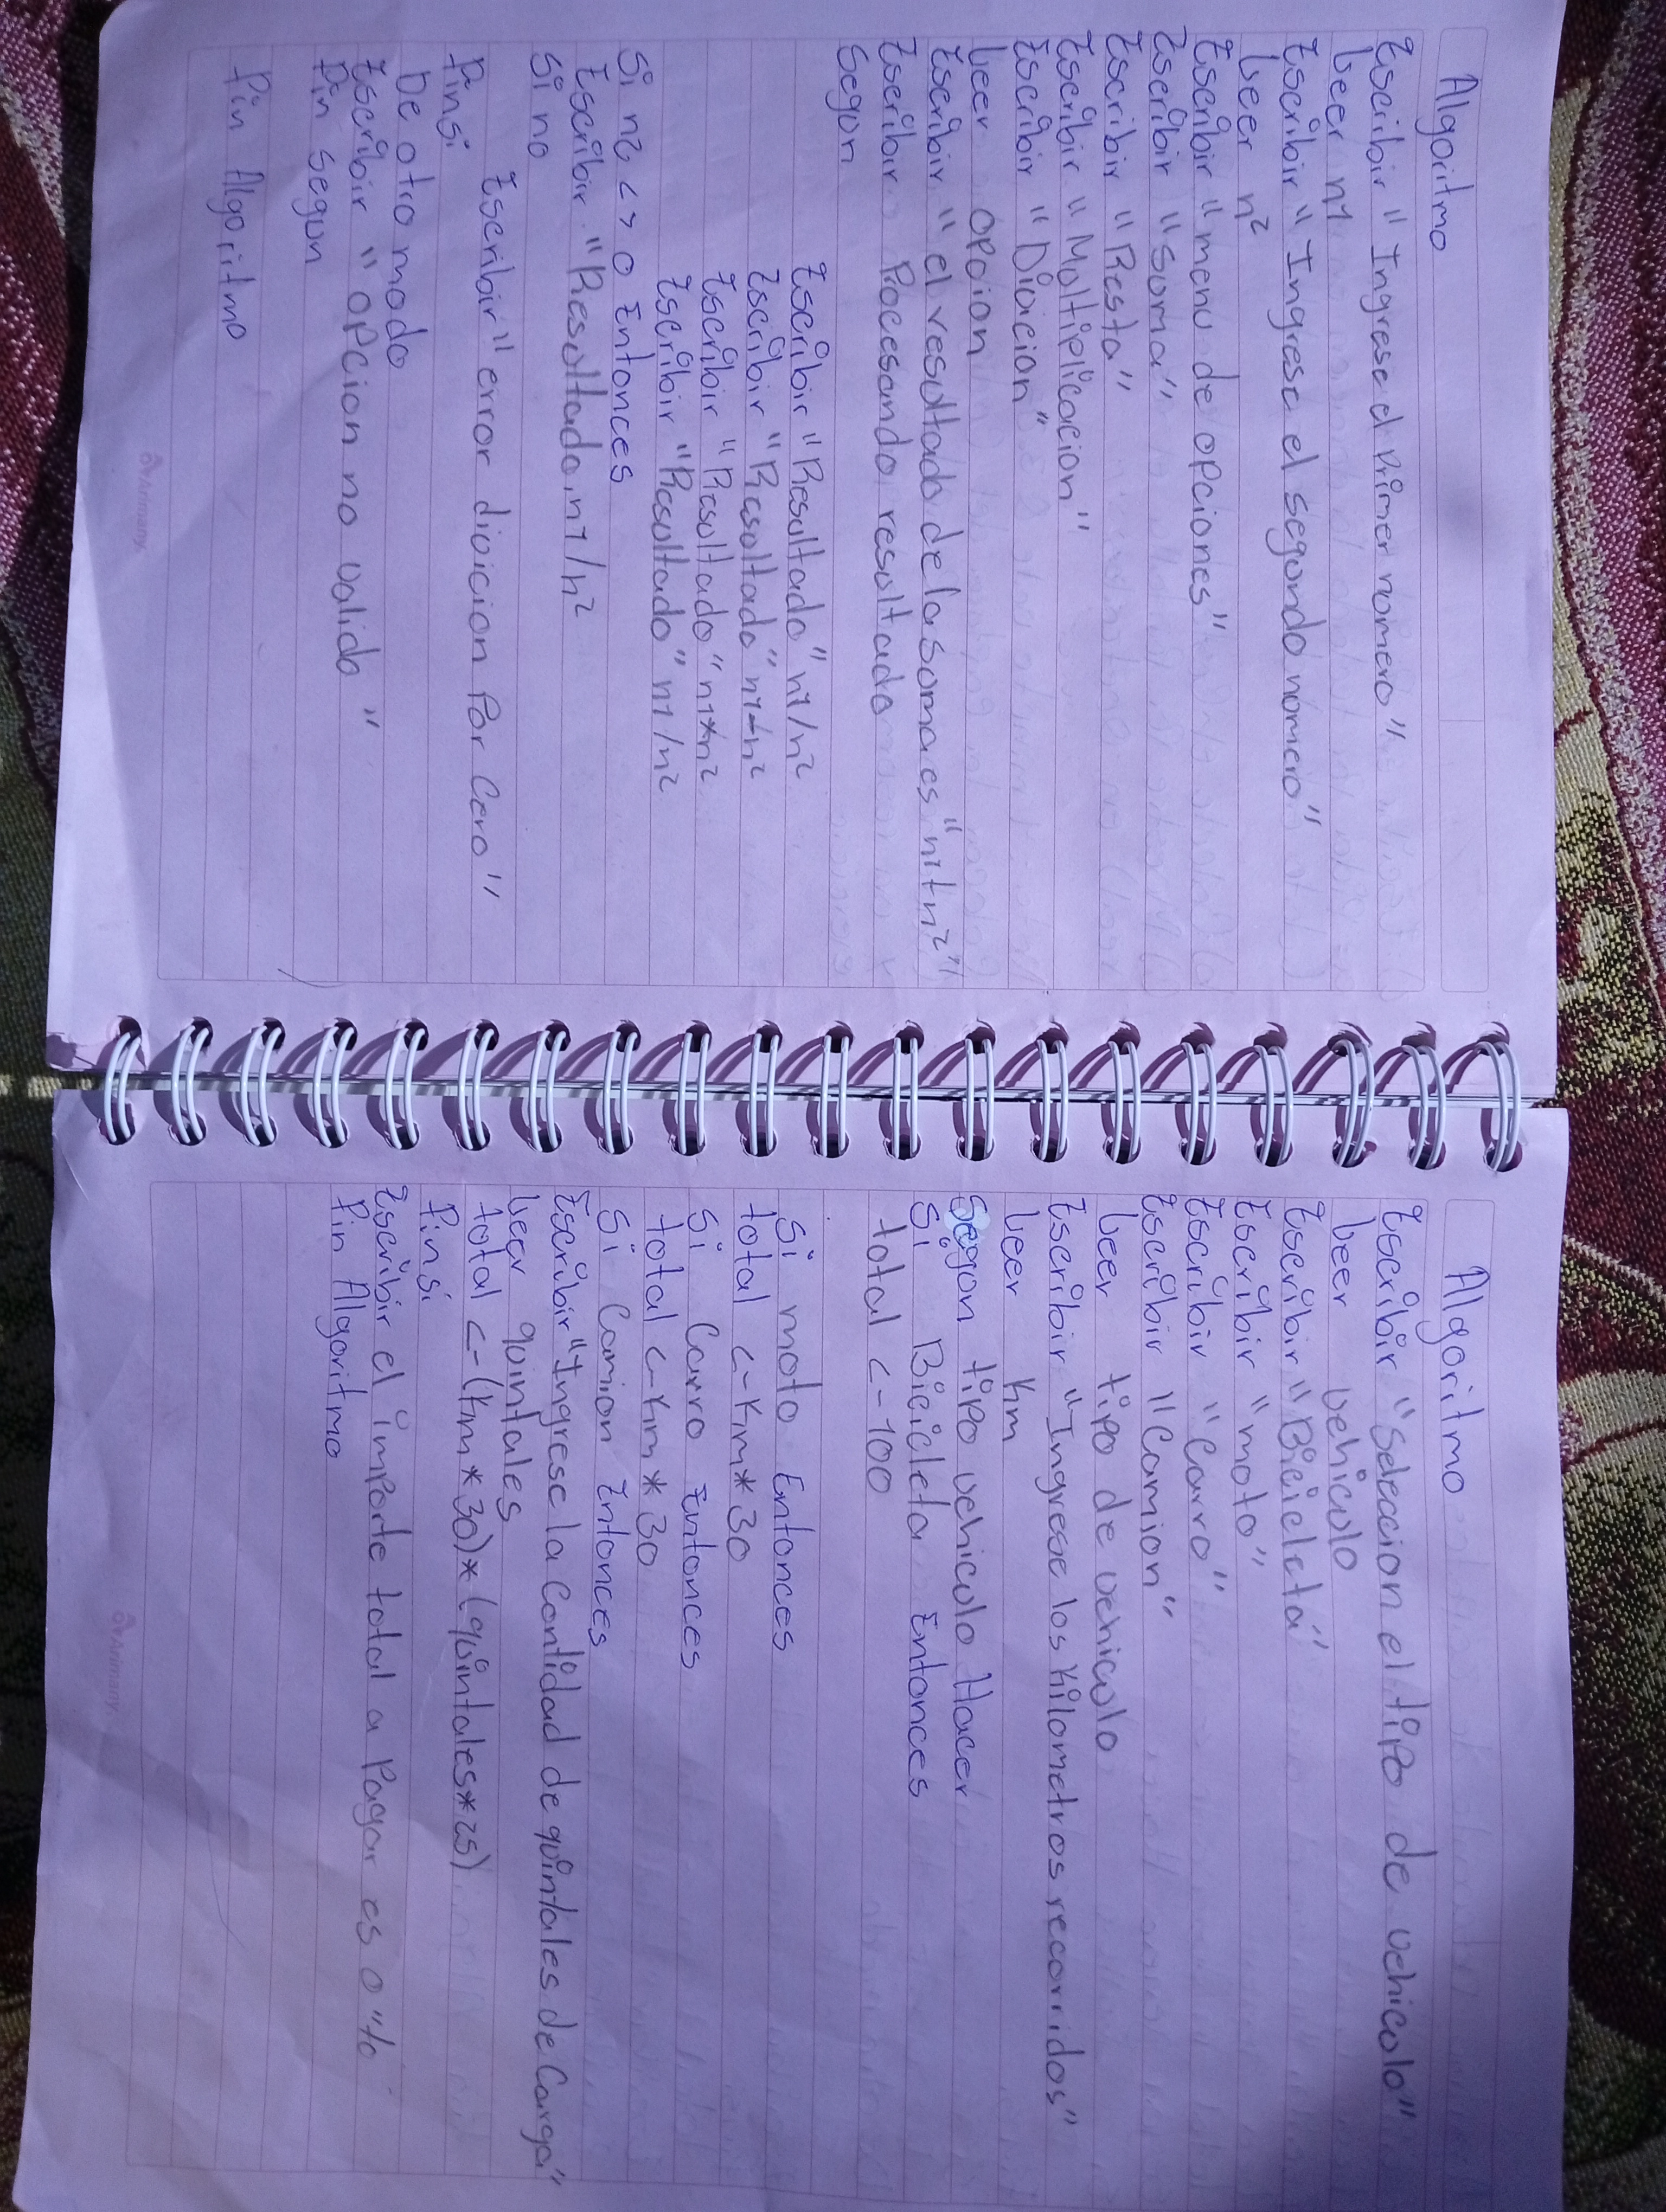 Algoritmo
Escribir "Ingrese el Primer nomero"
Leer n1
Escribir "Ingrese el segundo nomero"
Leer n2
Escribir "menu de opciones"
Escribir "Soma"
Escribir "Resta"
Escribir "Moltiplicacion"
Escribir "Diuicion"
Leer opcion
Escribir "el resultado de la soma es "n1+n2"
Escribir Procesando resultado
Segun
Escribir "Resultado" n1/n2
Escribir "Resultado" n1-n2
Escribir "Resultado" n1*n2
Escribir "Resultado" n1/n2
Si n2 <> 0 Entonces
Escribir "Resultado, n1/n2
Si no
Escribir "error diuicion Por Cero"
Finsi
De otro modo
Escribir "opcion no valida"
Fin segun
Fin Algoritmo
Arimany
Algoritmo
Escribir "Seleccion el tipo de vehiculo"
Leer vehiculo
Escribir "Bicicleta"
Escribir "moto"
Escribir "Carro"
Escribir "Camion"
Leer tipo de vehicolo
Escribir "Ingrese los Kilometros recorridos"
Leer Km
Segon tipo vehiculo Hacer
Si Bicicleta Entonces
total <- 100
Si moto Entonces
total <- Km*30
Si Carro Entonces
total <- Km*30
Si Camion Entonces
Escribir "Ingrese la Cantidad de quintales de Carga"
Leer quintales
total <- (Km*30)*(quintales*25)
Finsi
Escribir el importe total a Pagar es o "to
Fin Algoritmo
Arimany